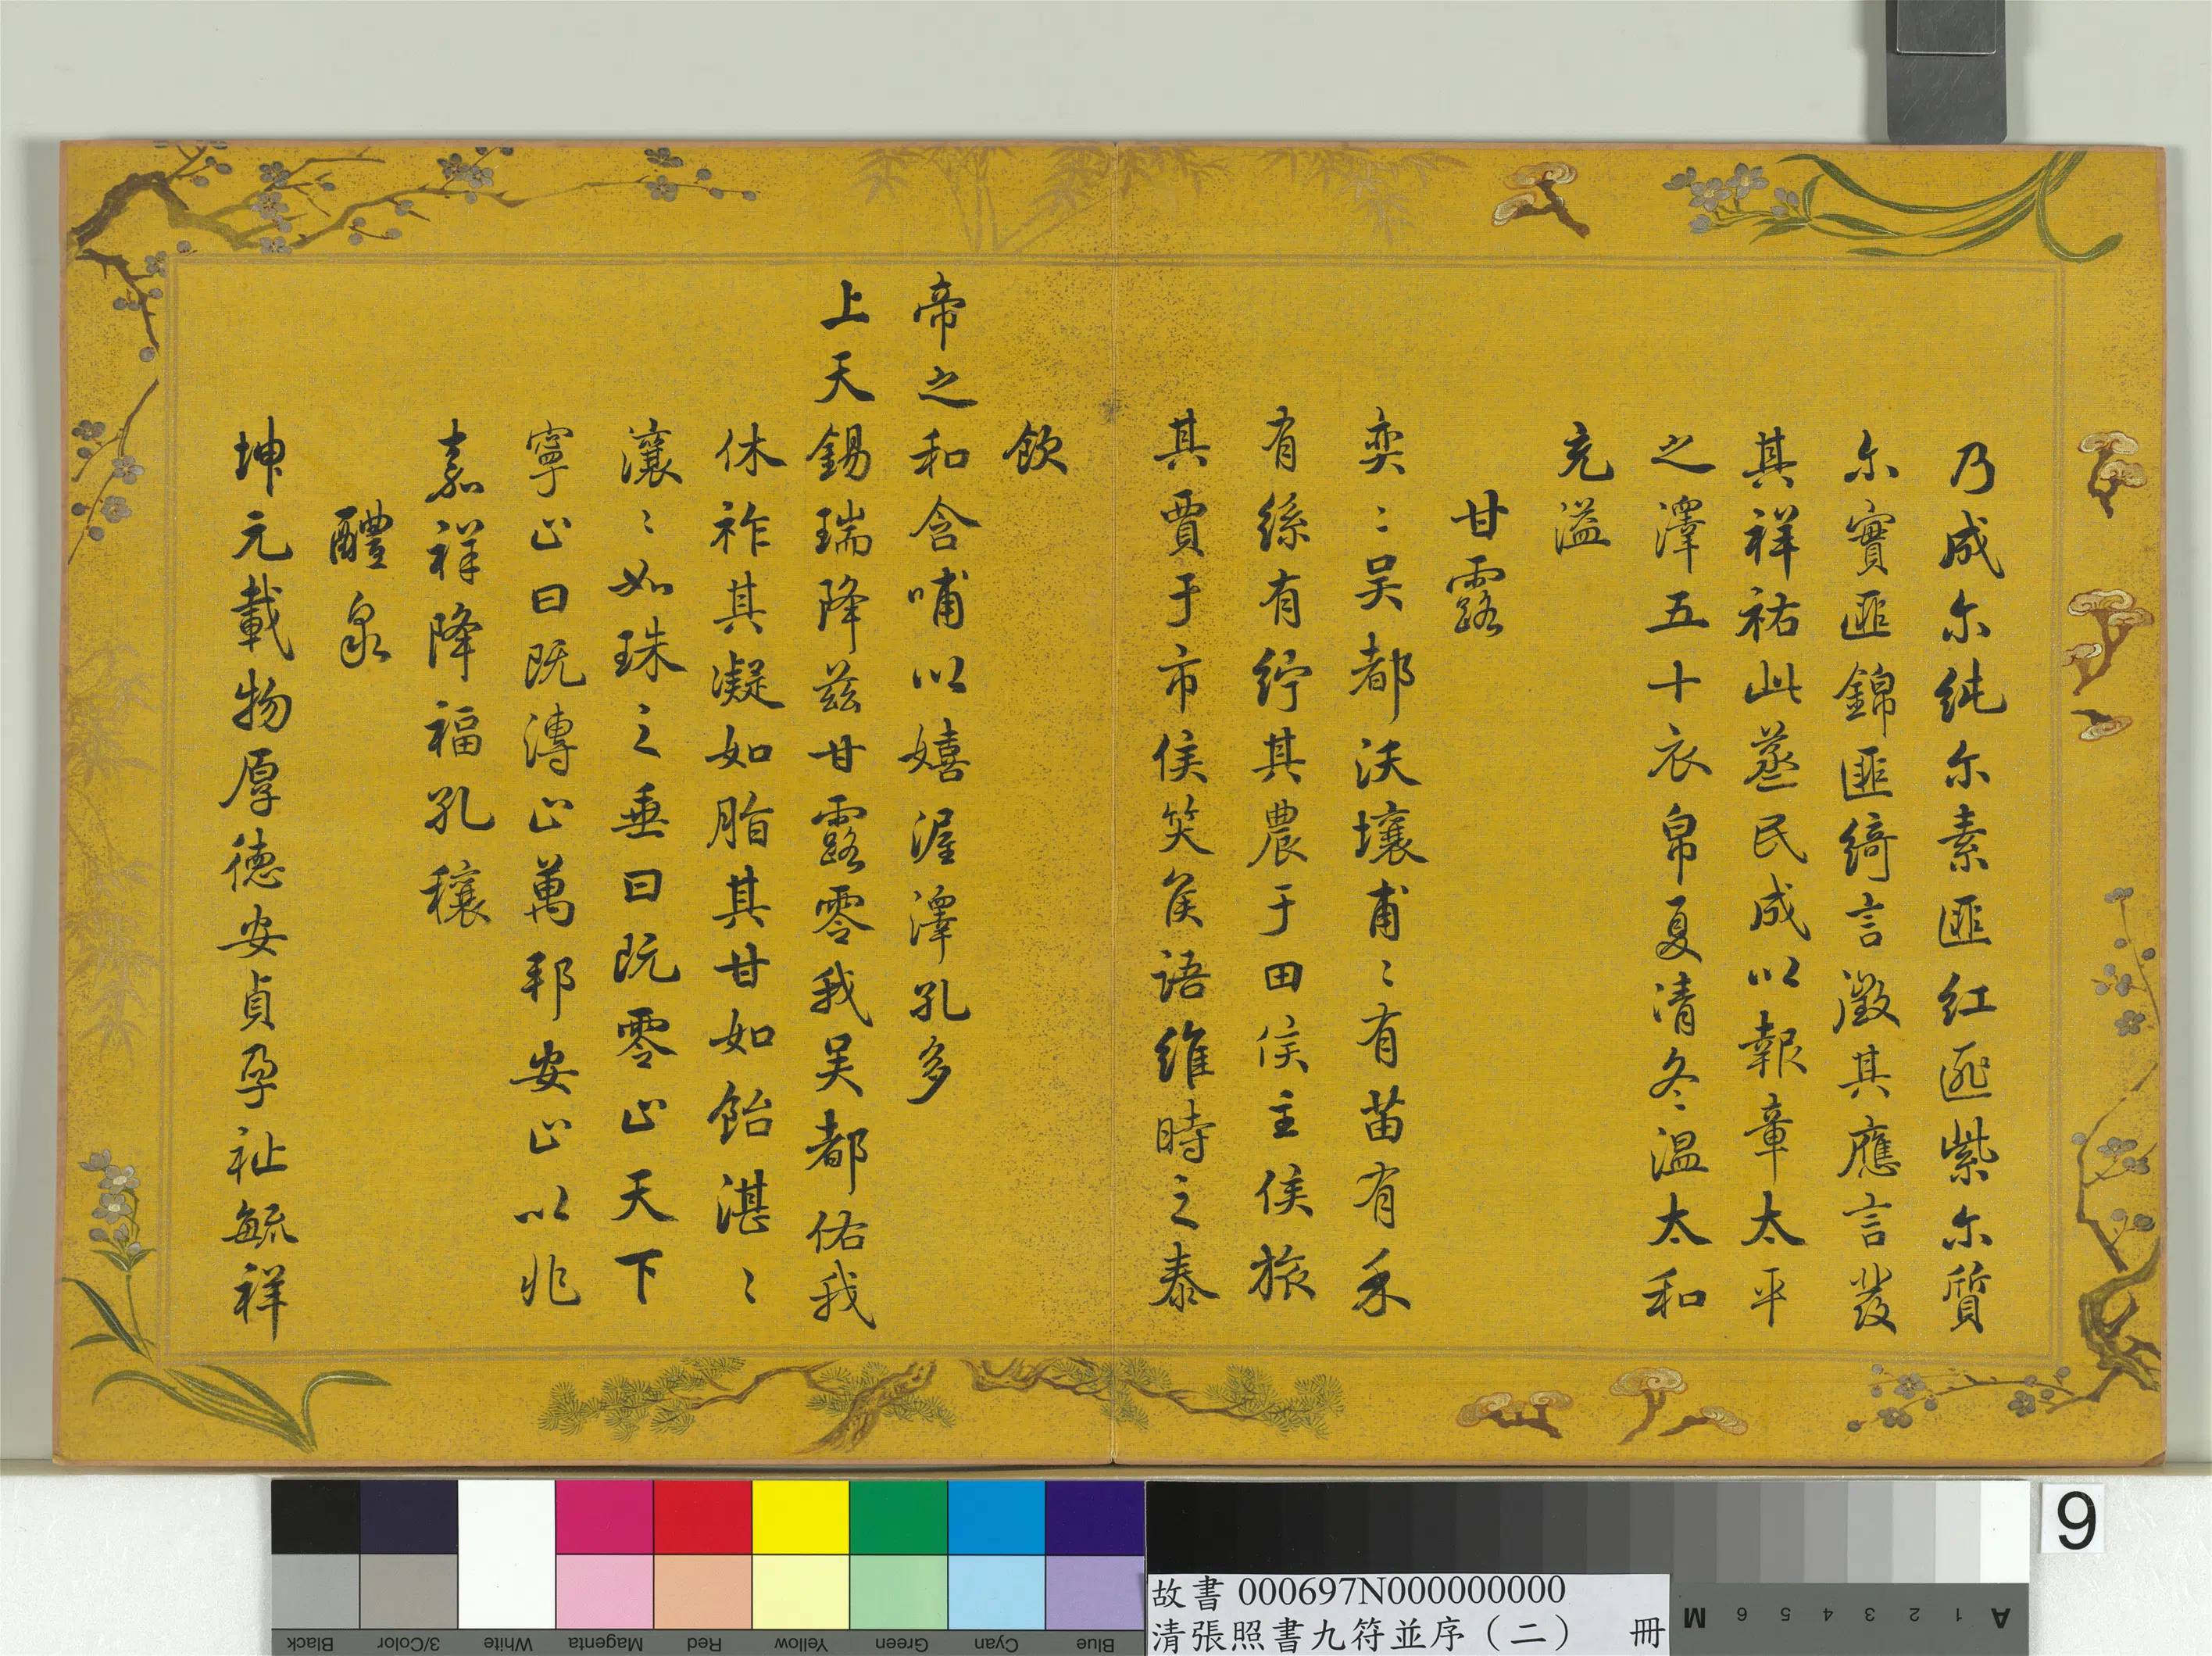 乃成尔純尔素匪红匪紫尔質
尔實匪錦匪綺言澂其應言發
其祥祐此蒸民成以報章太平
之澤五十衣帛夏清冬温太和
充溢
甘露
奕〻吴都沃壤甫〻有苗有禾
有絲有紵其農于田侯主侯旅
其賈于市侯笑侯語維時之泰
飲
帝之和含哺以嬉渥澤孔多
上天錫瑞降兹甘露零我吴都佑我
休祚其凝如脂其甘如飴湛〻
瀼〻如珠之垂曰既零止天下
寧止曰既漙止萬邦安止以兆
嘉祥降福孔穰
醴泉
坤元載物厚德安貞孕祉毓祥
9
故書 000697N000000000
清張照書九符並序（二） 冊
Black 3/Color White Magenta Red Yellow Green Cyan Blue
M 6 5 4 3 2 1 A